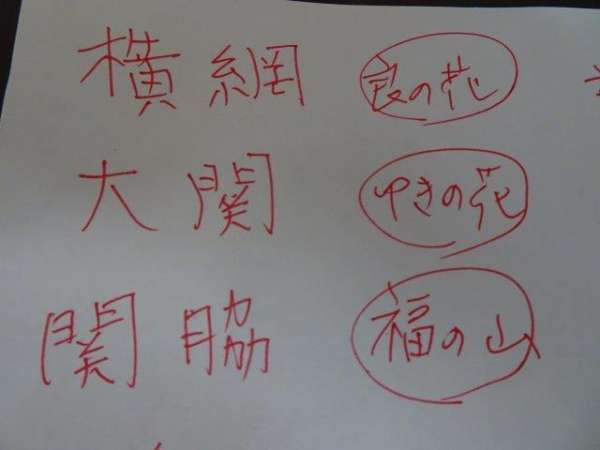 横網 良の花
大関 ゆきの花
関脇 福の山